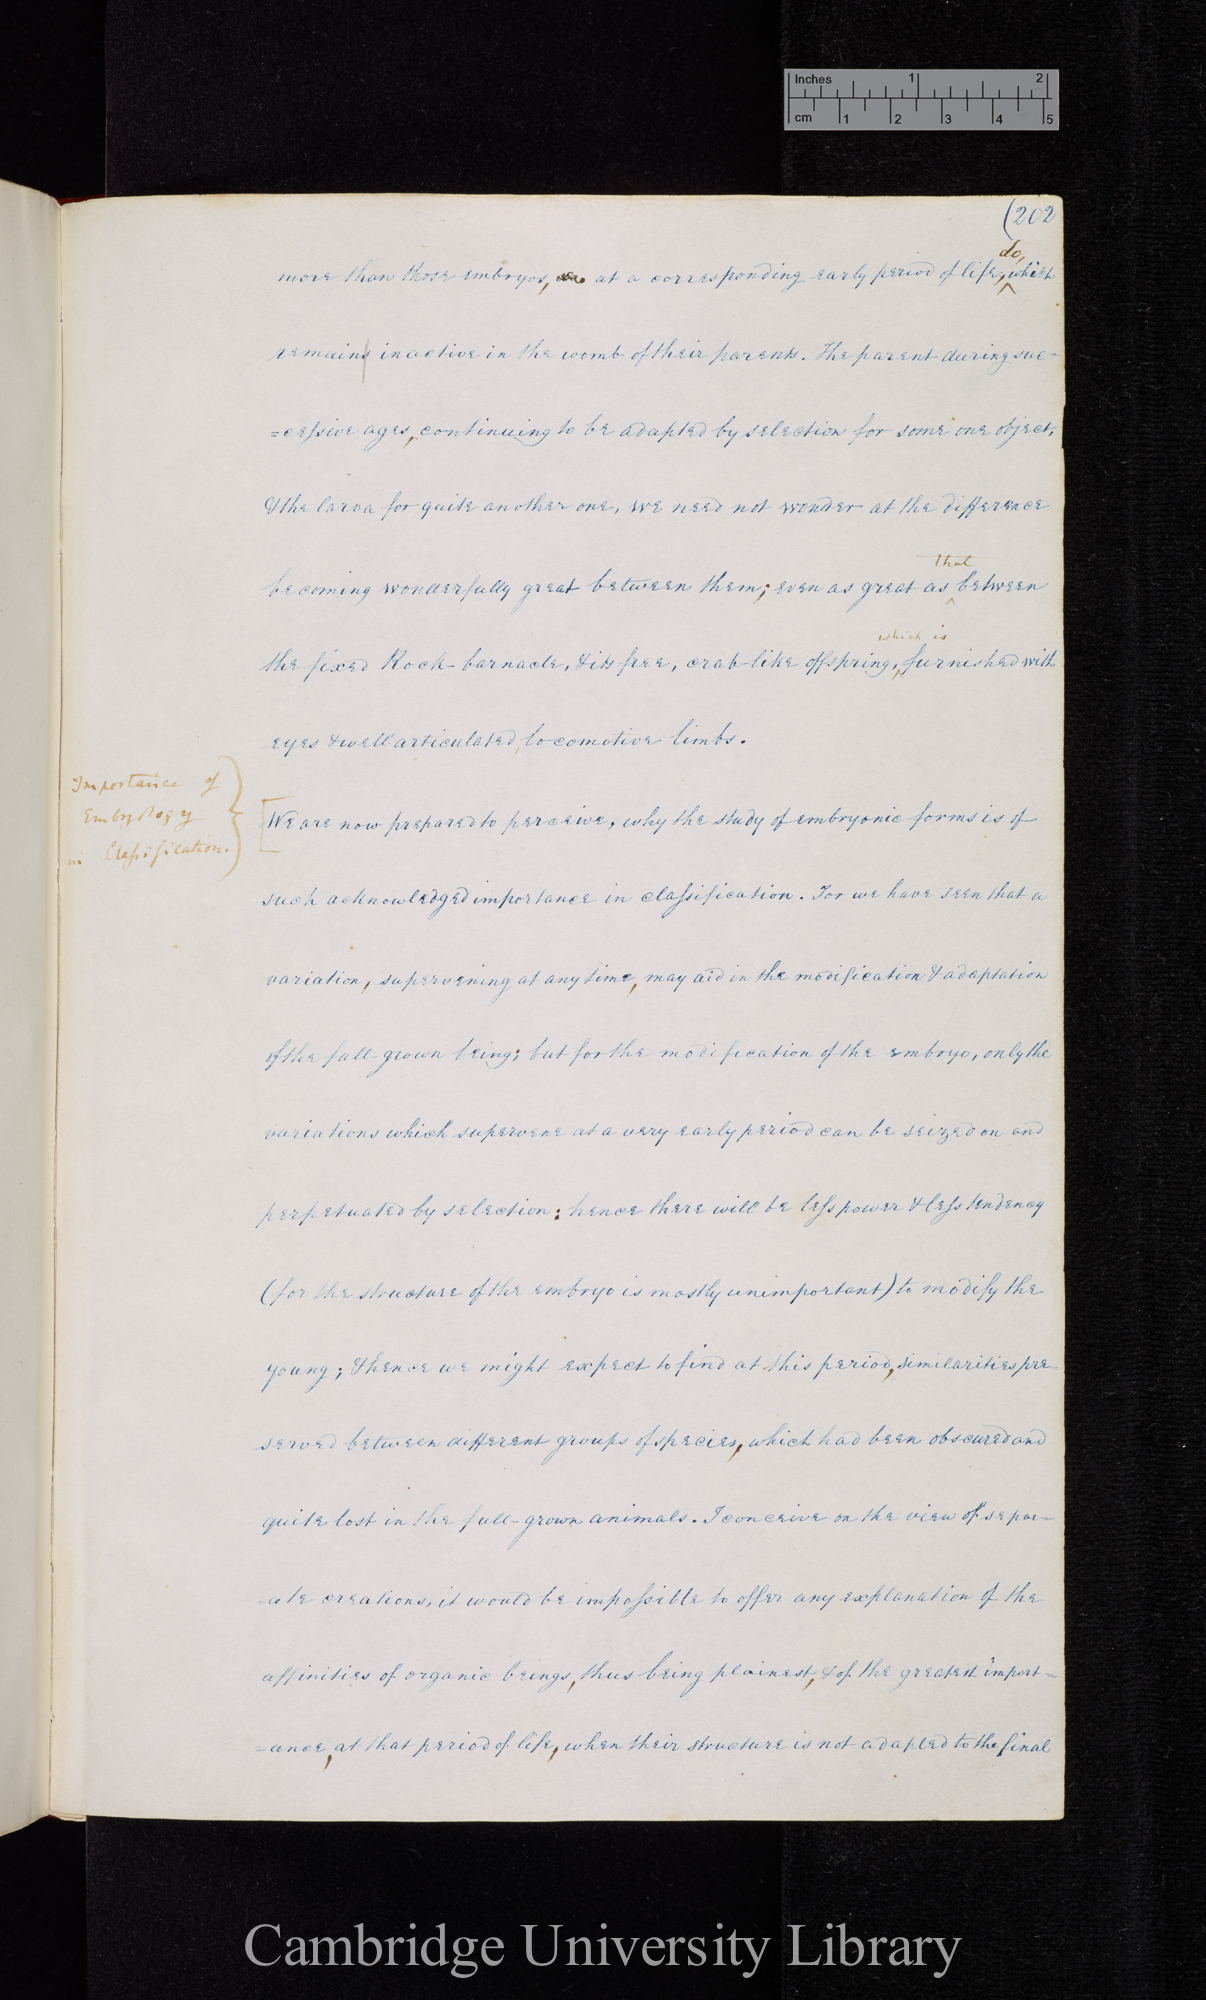 Inches 1 2
cm 1 2 3 4 5
(202
do,
more than those embryos, at a corresponding early period of life, which
remain inactive in the womb of their parents. The parent during suc-
=cessive ages, continuing to be adapted by selection for some one object,
& the larva for quite another one, we need not wonder at the difference
that
becoming wonderfully great between them; even as great as ^ between
which is
the fixed Rock-barnacle, & its free, crab-like offspring, ^ furnished with
eyes & well articulated, locomotive limbs.
Importance of
Embryology
in Classification.
[We are now prepared to perceive, why the study of embryonic forms is of
such acknowledged importance in classification. For we have seen that a
variation, supervening at any time, may aid in the modification & adaptation
of the full-grown being; but for the modification of the embryo, only the
variations which supervene at a very early period can be seized on and
perpetuated by selection: hence there will be less power & less tendency
(for the structure of the embryo is mostly unimportant) to modify the
young; & hence we might expect to find at this period, similarities pre-
served between different groups of species, which had been obscured and
quite lost in the full-grown animals. I conceive on the view of separ=
=ate creations, it would be impossible to offer any explanation of the
affinities of organic beings, thus being plainest, & of the greatest import=
=ance, at that period of life, when their structure is not adapted to the final
Cambridge University Library